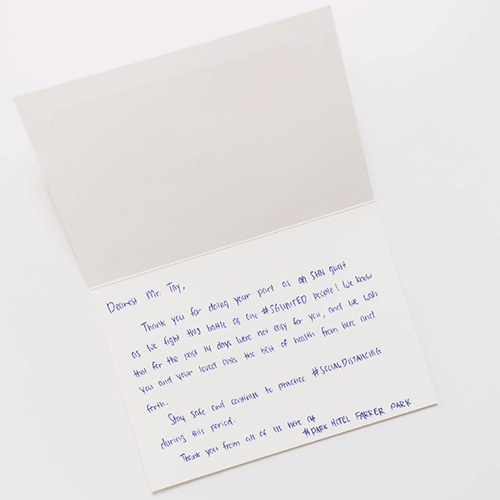 Dearest Mr. Tay,
Thank you for doing your part as an SHN guest
as we fight this battle as one #SGUNITED people! We know
that for the past 14 days were not easy for you, and we wish
you and your loved ones the best of health from here and
forth.
Stay safe and continue to practice #SOCIALDISTANCING
during this period.
Thank you from all of us here at
#PARK HOTEL FARRER PARK